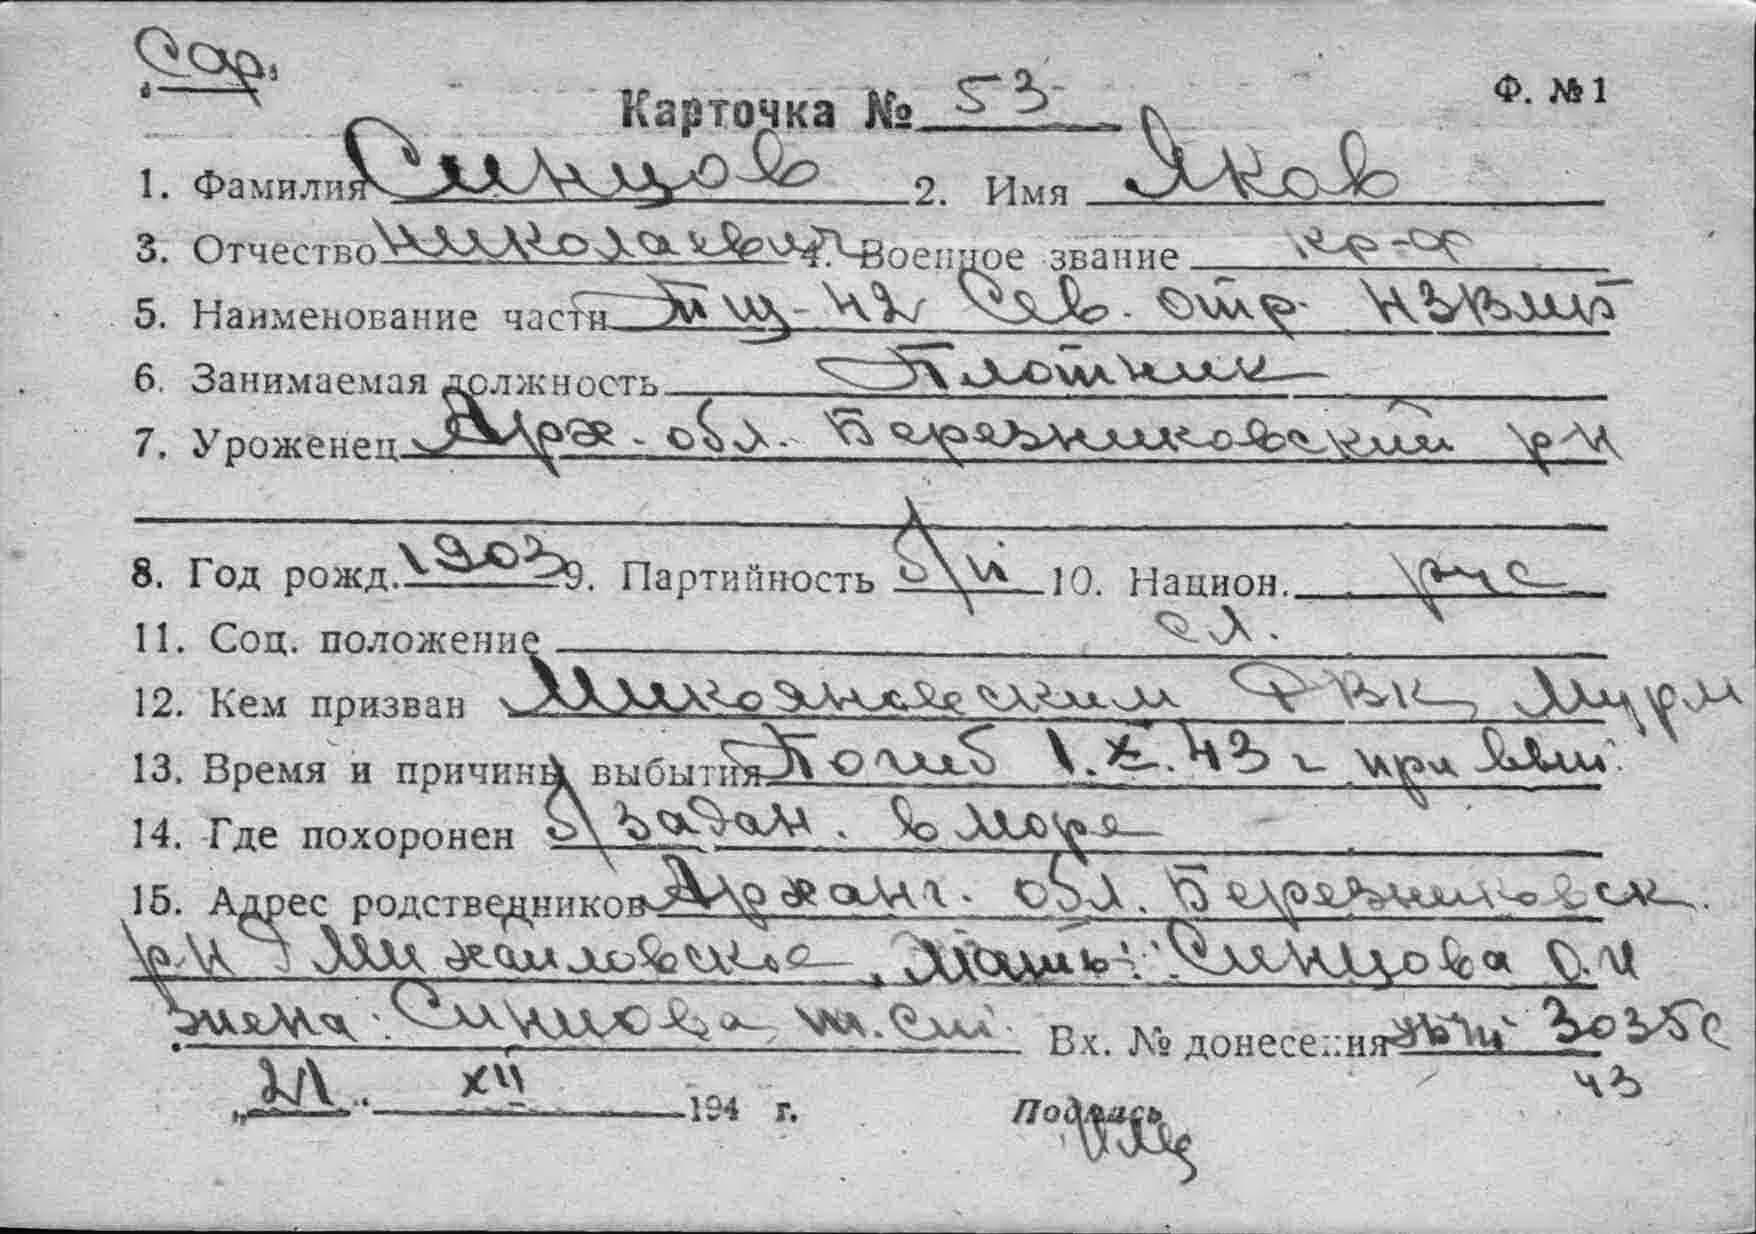 Сар.
Карточка № 53
Ф. №1
1. Фамилия Синцов 2. Имя Яков
3. Отчество Николаевич 4. Военное звание кр-ф
5. Наименование части Тщ-42 Сев. отр. НЗВМБ
6. Занимаемая должность Плотник
7. Уроженец Арх. обл. Березниковский р-н
8. Год рожд. 1903 9. Партийность б/п 10. Национ. рус
11. Соц. положение сл.
12. Кем призван Микояновским РВК, Мурм
13. Время и причины выбытия Погиб 1.X.43 г при
14. Где похоронен б/задан. в море
15. Адрес родственников Арханг. обл. Березниковск.
р-н Михайловское, Мать: Синцова О.И
жена: Синцова Вх. № донесения 3035с
43
„21" XII 194 г. Подпись